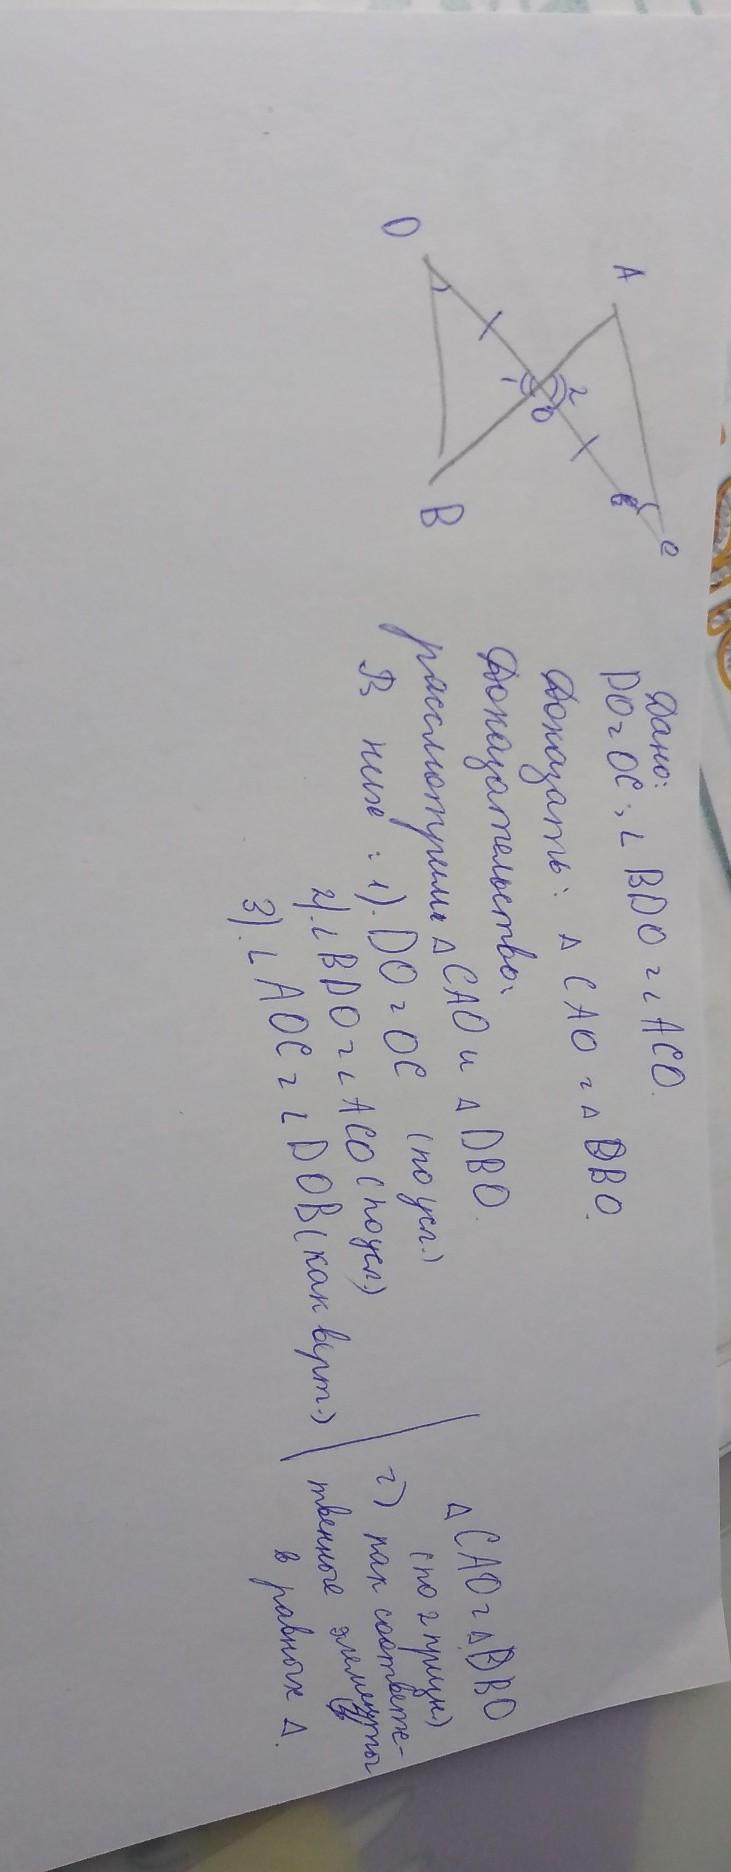 A
D
1
2
O
B
C
Дано:
DO = OC; ∠ BDO = ∠ ACO.
Доказать: △ CAO = △ DBO.
Доказательство:
рассмотрим △ CAO и △ DBO.
В них: 1). DO = OC (по усл.)
2). ∠ BDO = ∠ ACO (по усл.)
3). ∠ AOC = ∠ DOB (как верт.)
△ CAO = △ DBO
(по 2 призн.)
как соответс-
твенные элементы
в равных △.